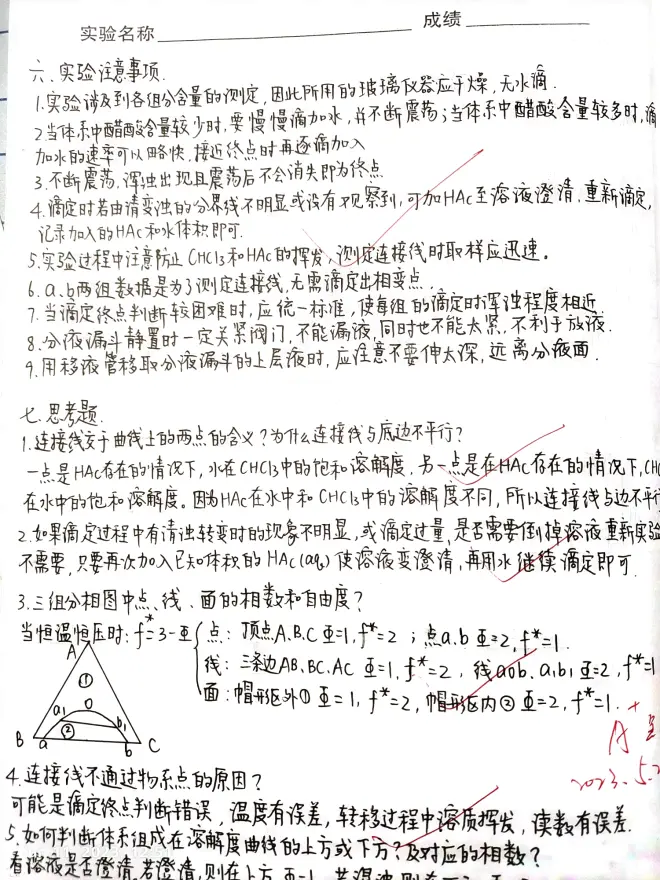 实验名称 成绩
六.实验注意事项.
1.实验涉及到各组分含量的测定,因此所用的玻璃仪器应干燥,无水滴.
2.当体系中醋酸含量较少时,要慢慢滴加水,并不断震荡;当体系中醋酸含量较多时,滴
加水的速率可以略快,接近终点时再逐滴加入
3.不断震荡,浑浊出现且震荡后不会消失即为终点
4.滴定时若由清变浊的分界线不明显或没有观察到,可加HAc至溶液澄清,重新滴定,
记录加入的HAc和水体积即可.
5.实验过程中注意防止CHCl3和HAc的挥发,测定连接线时取样应迅速。
6.a.b两组数据是为了测定连接线,无需滴定出相变点.
7.当滴定终点判断较困难时,应统一标准,使每组的滴定时浑浊程度相近.
8.分液漏斗静置时一定关紧阀门,不能漏液,同时也不能太紧,不利于放液.
9.用移液管移取分液漏斗的上层液时,应注意不要伸太深,远离分液面.
七.思考题.
1.连接线交于曲线上的两点的含义?为什么连接线与底边不平行?
一点是HAc存在的情况下,水在CHCl3中的饱和溶解度,另一点是在HAc存在的情况下,CHC
在水中的饱和溶解度。因为HAc在水中和CHCl3中的溶解度不同,所以连接线与边不平行
2.如果滴定过程中有清浊转变时的现象不明显,或滴定过量,是否需要倒掉溶液重新实验
不需要,只要再次加入已知体积的HAc(aq)使溶液变澄清,再用水继续滴定即可.
3.三组分相图中点、线、面的相数和自由度?
当恒温恒压时:f*=3-Φ 点:顶点A.B.C Φ=1,f*=2;点a.b Φ=2,f*=1.
线:三条边AB.BC.AC Φ=1,f*=2,线aob.a1b1 Φ=2,f*=1
面:帽形区外① Φ=1,f*=2,帽形区内② Φ=2,f*=1.
A
①
a1 o b1
②
B a b C
A+
2023.5.2
4.连接线不通过物系点的原因?
可能是滴定终点判断错误,温度有误差,转移过程中溶质挥发,读数有误差.
5.如何判断体系组成在溶解度曲线的上方或下方?及对应的相数?
看溶液是否澄清,若澄清,则在上方,Φ=1,若浑浊,则在